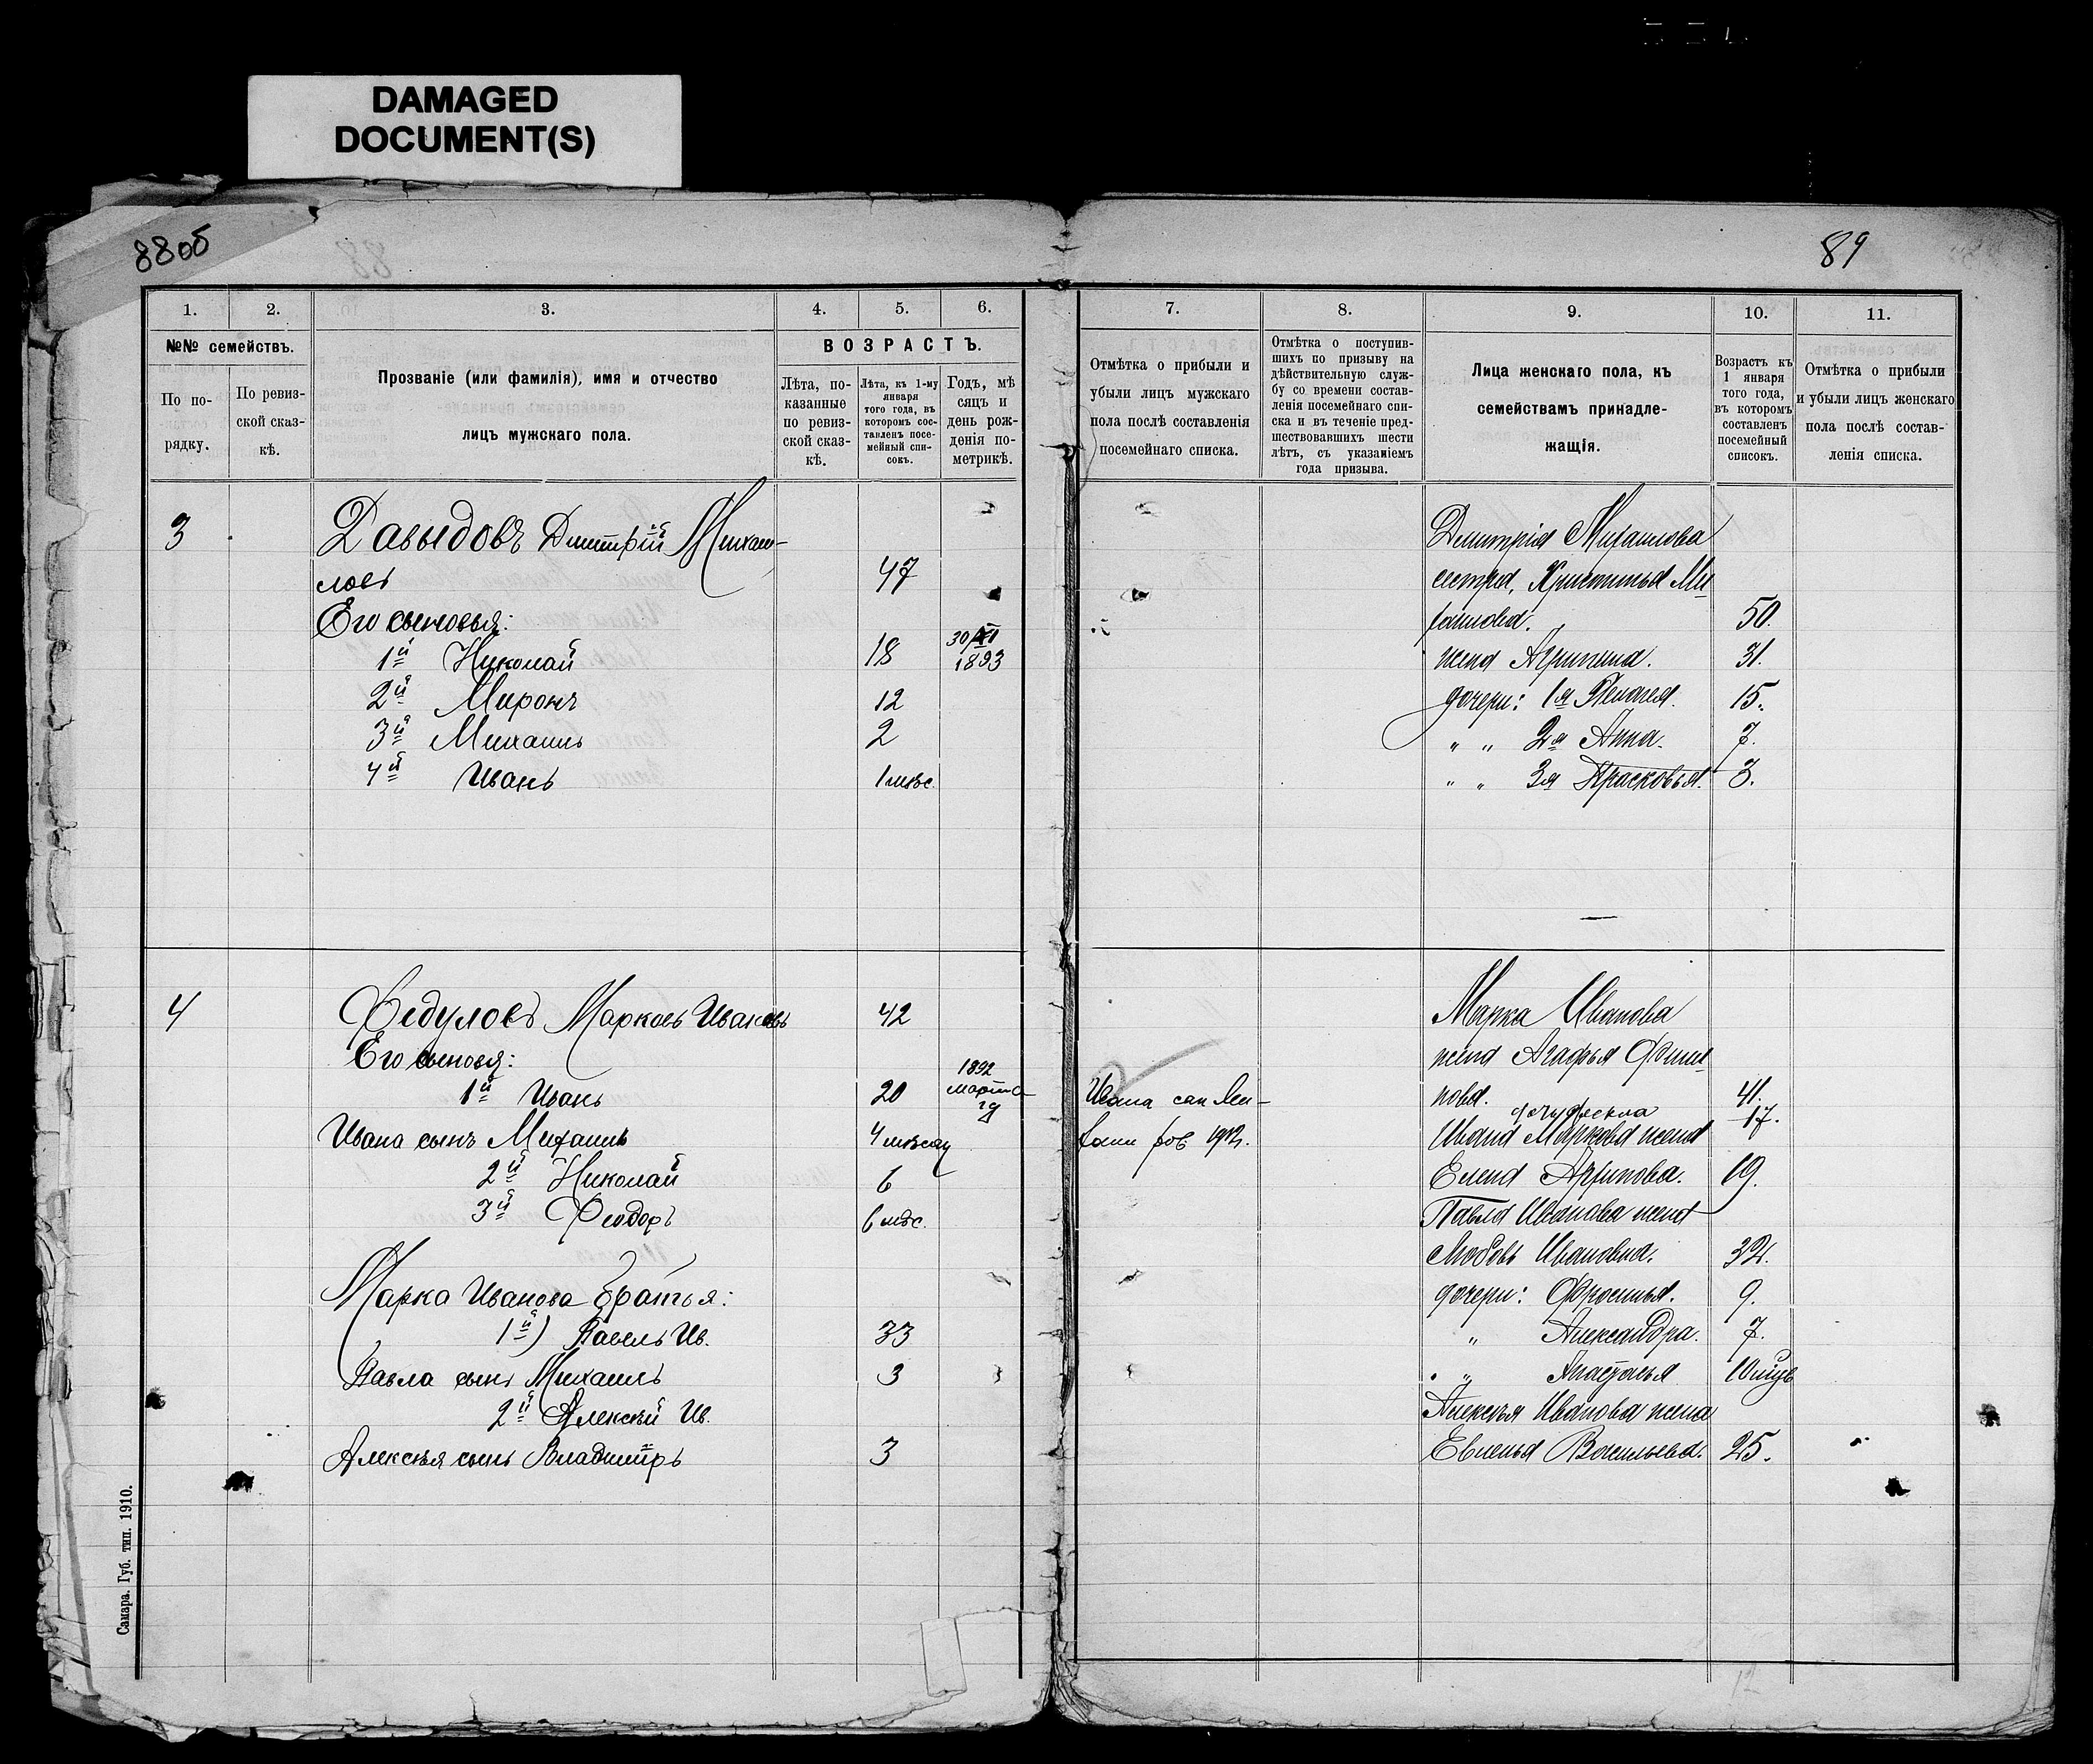 DAMAGED
DOCUMENT(S)
88об
89
1.
2.
3.
4.
5.
6.
№№ семействъ.
ВОЗРАСТЪ.
По по-
рядку.
По ревиз-
ской сказ-
кѣ.
Прозваніе (или фамилія), имя и отчество
лицъ мужскаго пола.
Лѣта, по-
казанные
по ревиз-
ской сказ-
кѣ.
Лѣта, къ 1-му
января
того года, въ
которомъ сос-
тавленъ посе-
мейный спи-
сокъ.
Годъ, мѣ
сяцъ и
день рож-
денія по-
метрикѣ.
3
Давыдовъ Дмитрій Михаи-
ловъ
47
Его сыновья:
1й Николай 18 30/XI 1893
2й Миронъ 12
3й Михаилъ 2
4й Иванъ 1 мѣс.
4
Федуловъ Маркъ Ивановъ 42
Его сыновья:
1й Иванъ 20 1892 марта
Ивана сынъ Михаилъ
2й Николай 6
3й Феодоръ 6 мѣс.
Марка Иванова братья:
1й) Павелъ Ив. 33
Павла сынъ Михаилъ 3
2й Алексѣй Ив.
Алексѣя сынъ Владиміръ 3
Самара. Губ. тип. 1910.
7.
8.
9.
10.
11.
Отмѣтка о прибыли и
убыли лицъ мужскаго
пола послѣ составленія
посемейнаго списка.
Отмѣтка о поступив-
шихъ по призыву на
дѣйствительную служ-
бу со времени состав-
ленія посемейнаго спи-
ска и въ теченіе пред-
шествовавшихъ шести
лѣтъ, съ указаніемъ
года призыва.
Лица женскаго пола, къ
семействамъ принадле-
жащія.
Возрастъ къ
1 января
того года,
въ которомъ
составленъ
посемейный
списокъ.
Отмѣтка о прибыли
и убыли лицъ женскаго
пола послѣ состав-
ленія списка.
Дмитрія Михаилова
сестра, Христинья Ми
хаилова. 50.
жена Агрипина. 31.
дочери: 1я Пелагея. 15.
" " 2я Анна. 7.
" " 3я Прасковья. 3.
Марка Иванова
жена Агафья Филип
пова. 41.
17.
Ивана Маркова жена
Елена Архипова. 19.
Павла Иванова жена
Любовь Ивановна. 32.
дочери: Фросинья. 9.
" Александра. 7.
" Анастасья
Алексѣя Иванова жена
Евгенья Васильева. 25.
Ивана сын Ми-
хаил 1912.
12